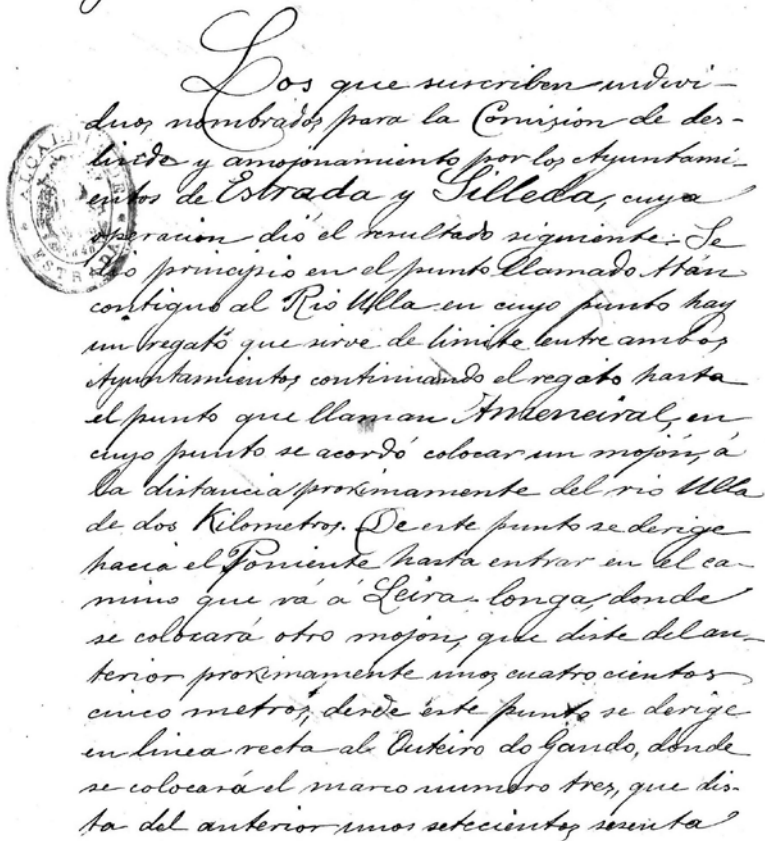 Los que suscriben indivi-
duos nombrados para la Comision de des-
linde y amojonamiento por los Ayuntami-
entos de Estrada y Silleda, cuya
operacion dió el resultado siguiente: Se
dió principio en el punto llamado Atán
contiguo al Rio Ulla en cuyo punto hay
un regato que sirve de limite entre ambos
Ayuntamientos continuando el regato hasta
el punto que llaman Ameneiral, en
cuyo punto se acordó colocar un mojón, á
la distancia proximamente del rio Ulla
de dos Kilometros. De este punto se derige
hacia el Poniente hasta entrar en el ca-
mino que vá á Leira-longa, donde
se colocará otro mojón, que diste del an-
terior proximamente unos cuatrocientos
cinco metros, desde este punto se derige
en linea recta al Outeiro do Gando, donde
se colocará el marco numero tres, que dis-
ta del anterior unos setecientos sesenta
ALCALDIA
ESTRADA